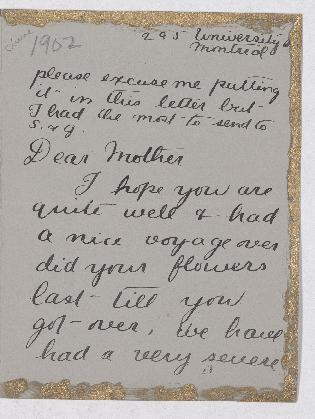 1902
295 University
Montreal
please excuse me putting
it in this letter but
I had the most to send to
S. & G.
Dear Mother
I hope you are
quite well & had
a nice voyage over
did your flowers
last till you
got over, we have
had a very severe